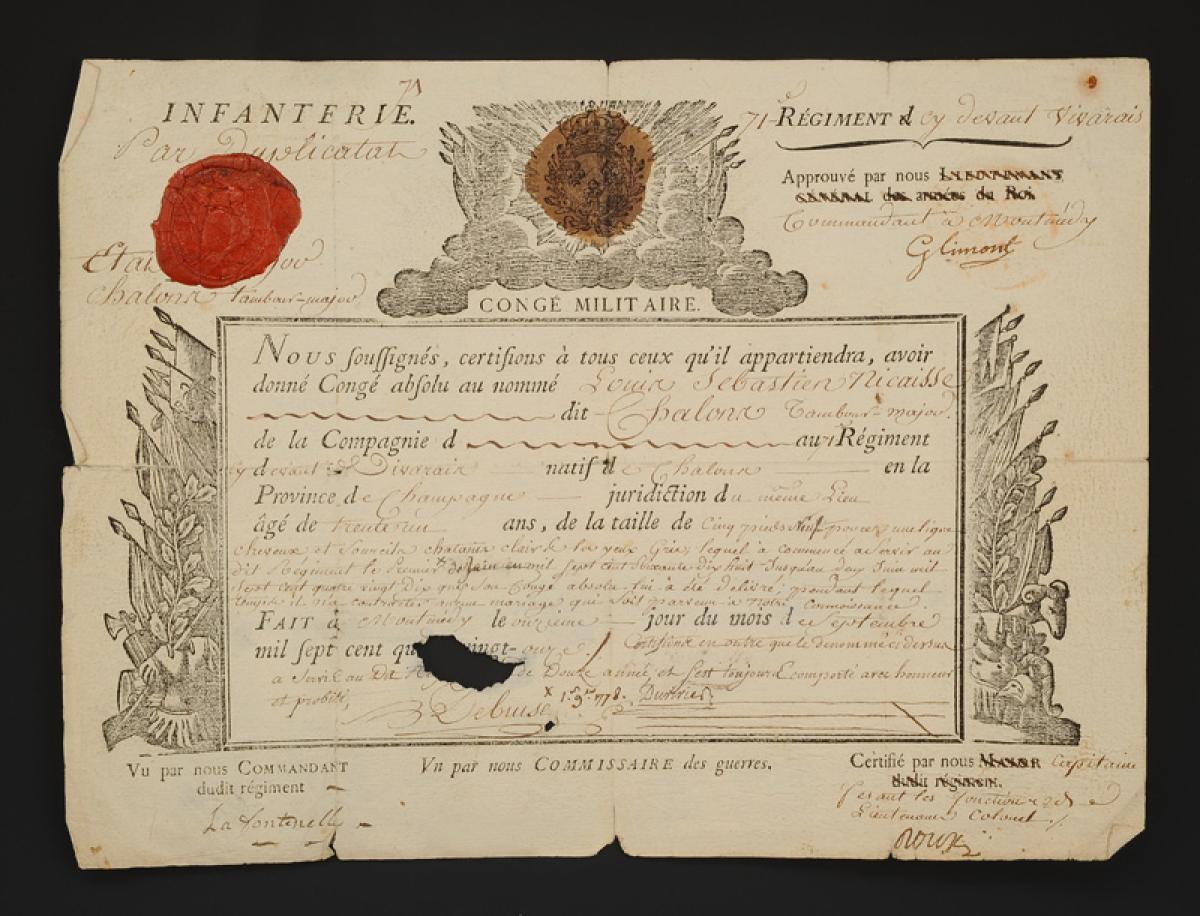 INFANTERIE. 71
71 RÉGIMENT d cy devant Vivarais
Par Duplicatat
Approuvé par nous LIEUTENANT
GÉNÉRAL des armées du Roi
Commandant à Montmédy
Glimont
Etat major
Chalons tambour-major
CONGÉ MILITAIRE.
NOUS soussignés, certifions à tous ceux qu'il appartiendra, avoir
donné Congé absolu au nommé Louis Sébastien Nicaisse
dit Chalons Tambour-major.
de la Compagnie d au 71 Régiment
cy devant Vivarais natif de Chalons en la
Province de Champagne juridiction du même Lieu
âgé de trente un ans, de la taille de Cinq pieds Neuf pouces une ligne
cheveux et Sourcils chatains clairs les yeux Gris, lequel à commencé a Servir au
dit Régiment le Premier en mil Sept Cent Soixante dix huit Jusqu'au deux Juin mil
Sept Cent quatre vingt Dix que Son Congé absolu lui à été délivré; pendant lequel
temps il n'a contracté aucun mariage qui Soit parvenu à Notre Connoissance
FAIT à Montmédy le onzieme jour du mois de Septembre
mil sept cent qu vingt-onze / Certifions en outre que le dénommé ci dessus
a Servi au Dit de Douze année, et s'est toujours comporté avec honneur
et probité,
Debuise x 1er 9bre 778.
Vu par nous COMMANDANT
dudit régiment
La Fontinelle
Vu par nous COMMISSAIRE des guerres.
Certifié par nous MAJOR Capitaine
dudit régiment.
fesant les fonctions de
Lieutenant Colonel ./.